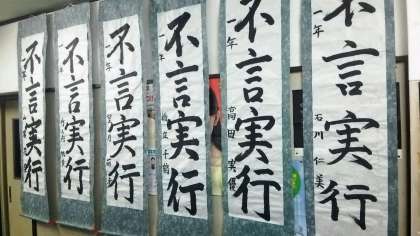 不言実行
一年
石川仁美
不言実行
一年
高田実優
不言実行
一年
千鶴
不言実行
一年
不言実行
一年
不言実行
一年